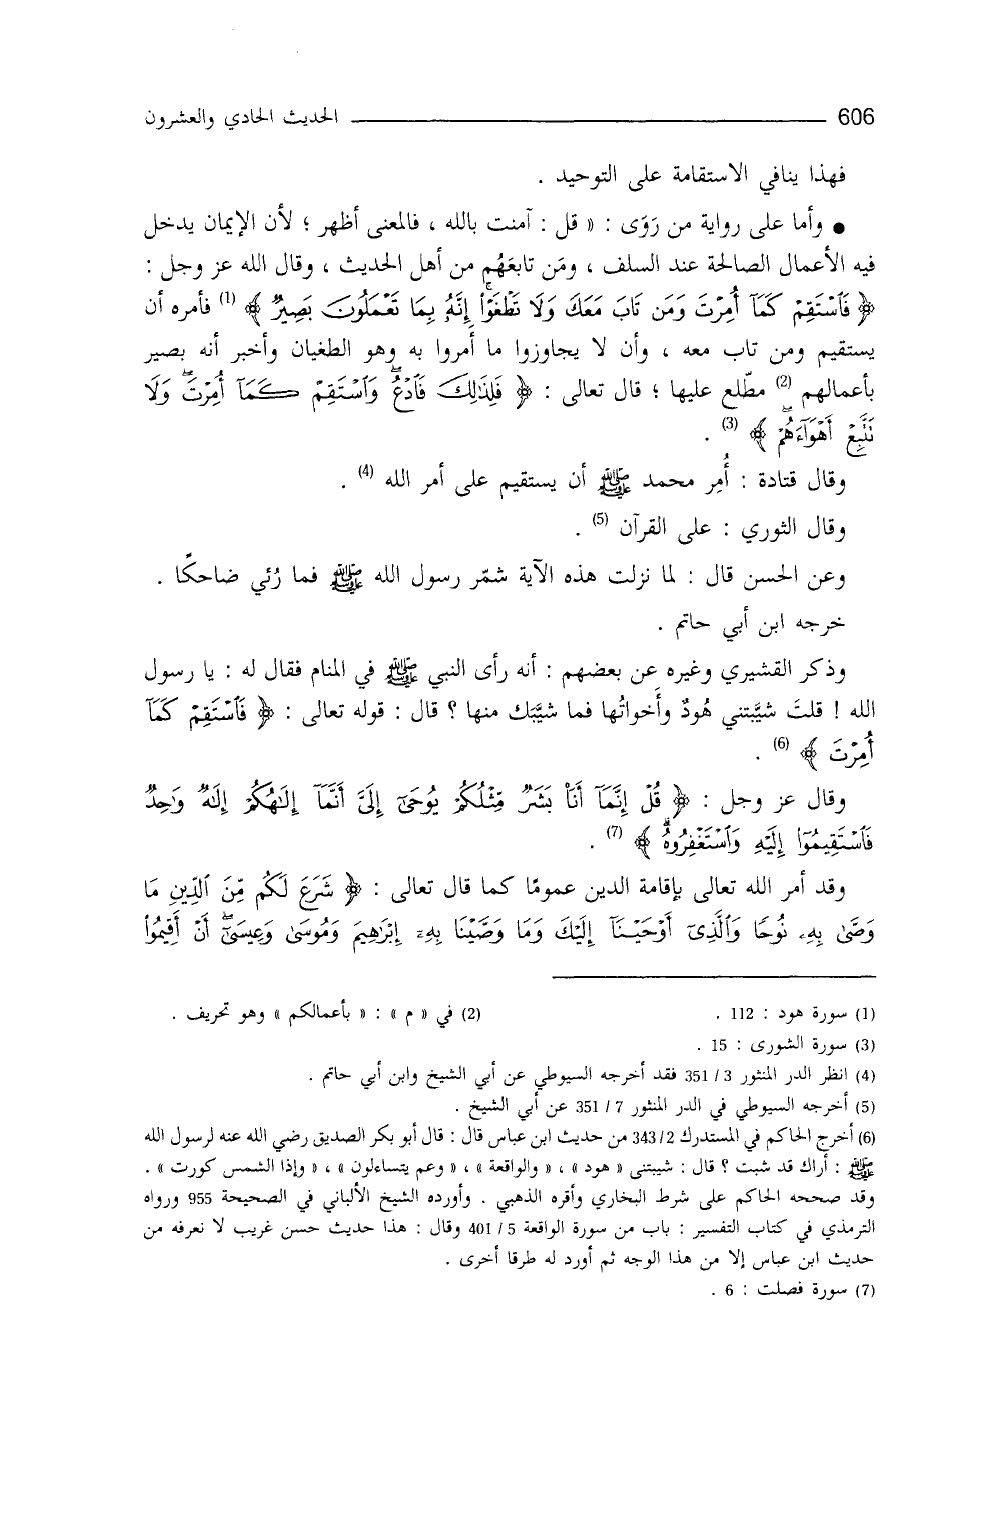 606 الحديث الحادي والعشرون
فهذا ينافي الاستقامة على التوحيد .
● وأما على رواية من رَوَى : « قل : آمنت بالله ، فالمعنى أظهر ؛ لأن الإيمان يدخل
فيه الأعمال الصالحة عند السلف ، ومَن تابعَهُم من أهل الحديث ، وقال الله عز وجل :
﴿ فَٱسْتَقِمْ كَمَآ أُمِرْتَ وَمَن تَابَ مَعَكَ وَلَا تَطْغَوْا۟ ۚ إِنَّهُۥ بِمَا تَعْمَلُونَ بَصِيرٌ ﴾ (1) فأمره أن
يستقيم ومن تاب معه ، وأن لا يجاوزوا ما أمروا به وهو الطغيان وأخبر أنه بصير
بأعمالهم (2) مطّلع عليها ؛ قال تعالى : ﴿ فَلِذَٰلِكَ فَٱدْعُ ۖ وَٱسْتَقِمْ كَمَآ أُمِرْتَ ۖ وَلَا
نَتَّبِعْ أَهْوَآءَهُمْ ۖ ﴾ (3) .
وقال قتادة : أُمِر محمد ﷺ أن يستقيم على أمر الله (4) .
وقال الثوري : على القرآن (5) .
وعن الحسن قال : لما نزلت هذه الآية شمّر رسول الله ﷺ فما رُئي ضاحكًا .
خرجه ابن أبي حاتم .
وذكر القشيري وغيره عن بعضهم : أنه رأى النبي ﷺ في المنام فقال له : يا رسول
الله ! قلتَ شيَّبتني هُودٌ وأَخواتُها فما شيَّبَك منها ؟ قال : قوله تعالى : ﴿ فَٱسْتَقِمْ كَمَآ
أُمِرْتَ ﴾ (6) .
وقال عز وجل : ﴿ قُلْ إِنَّمَآ أَنَا۠ بَشَرٌ مِّثْلُكُمْ يُوحَىٰٓ إِلَىَّ أَنَّمَآ إِلَٰهُكُمْ إِلَٰهٌ وَٰحِدٌ
فَٱسْتَقِيمُوٓا۟ إِلَيْهِ وَٱسْتَغْفِرُوهُ ۗ ﴾ (7) .
وقد أمر الله تعالى بإقامة الدين عمومًا كما قال تعالى : ﴿ شَرَعَ لَكُم مِّنَ ٱلدِّينِ مَا
وَصَّىٰ بِهِۦ نُوحًا وَٱلَّذِىٓ أَوْحَيْنَآ إِلَيْكَ وَمَا وَصَّيْنَا بِهِۦٓ إِبْرَٰهِيمَ وَمُوسَىٰ وَعِيسَىٰٓ ۖ أَنْ أَقِيمُوا۟
(1) سورة هود : 112 . (2) في « م » : « بأعمالكم » وهو تحريف .
(3) سورة الشورى : 15 .
(4) انظر الدر المنثور 3 / 351 فقد أخرجه السيوطي عن أبي الشيخ وابن أبي حاتم .
(5) أخرجه السيوطي في الدر المنثور 7 / 351 عن أبي الشيخ .
(6) أخرج الحاكم في المستدرك 2 / 343 من حديث ابن عباس قال : قال أبو بكر الصديق رضي الله عنه لرسول الله
ﷺ : أراك قد شبت ؟ قال : شيبتنى « هود » ، « والواقعة » ، « وعم يتساءلون » ، « وإذا الشمس كورت » .
وقد صححه الحاكم على شرط البخاري وأقره الذهبي . وأورده الشيخ الألباني في الصحيحة 955 ورواه
الترمذي في كتاب التفسير : باب من سورة الواقعة 5 / 401 وقال : هذا حديث حسن غريب لا نعرفه من
حديث ابن عباس إلا من هذا الوجه ثم أورد له طرقا أخرى .
(7) سورة فصلت : 6 .